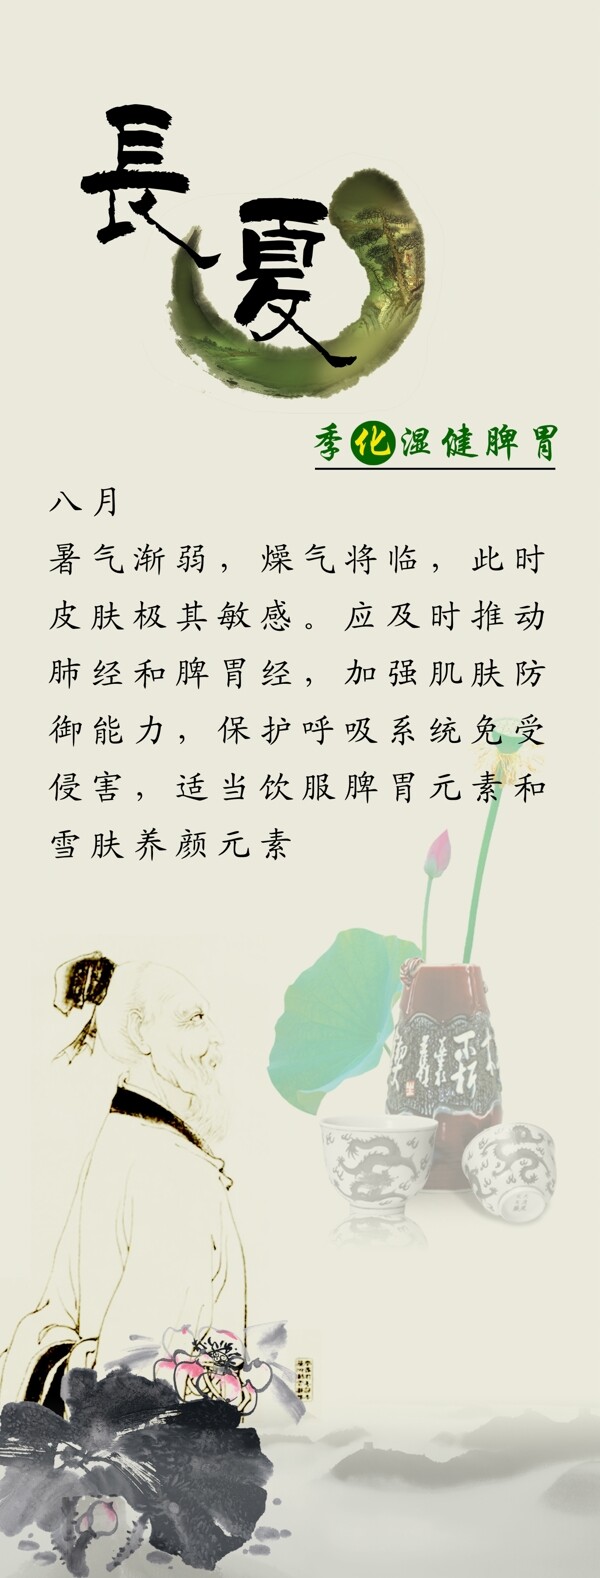 長夏
季化湿健脾胃
八月
暑气渐弱，燥气将临，此时
皮肤极其敏感。应及时推动
肺经和脾胃经，加强肌肤防
御能力，保护呼吸系统免受
侵害，适当饮服脾胃元素和
雪肤养颜元素